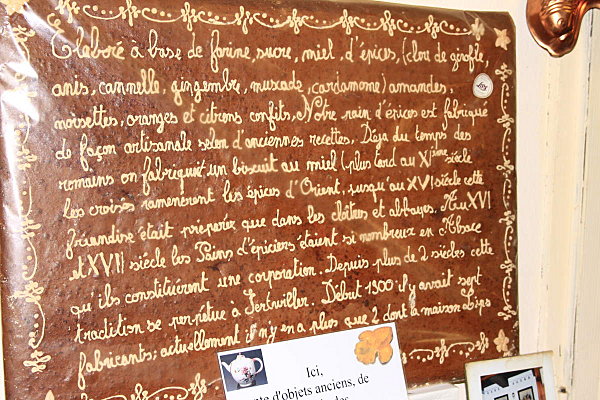 Elaboré a base de farine, sucre, miel, d'épices, (clou de girofle,
anis, cannelle, gingembre, muscade, cardamome) amandes,
noisettes, oranges et citrons confits, Notre pain d'épices est fabriqué
de façon artisanale selon d'anciennes recettes, Déja du temps des
romains on fabriquait un biscuit au miel (plus tard au XIième siècle
les croisés ramenèrent les épices d'Orient, jusqu'au XVI siècle cette
friandise était préparée que dans les cloîtres et abbayes, Au XVI
et XVII siècle les Pains d'épiciers étaient si nombreux en Alsace
qu'ils constituèrent une corporation. Depuis plus de 2 siècles cette
tradition se perpétue à Gertwiller. Début 1900 il y avait sept
fabricants; actuellement il n'y en a plus que 2 dont la maison Lips
Ici,
d'objets anciens, de